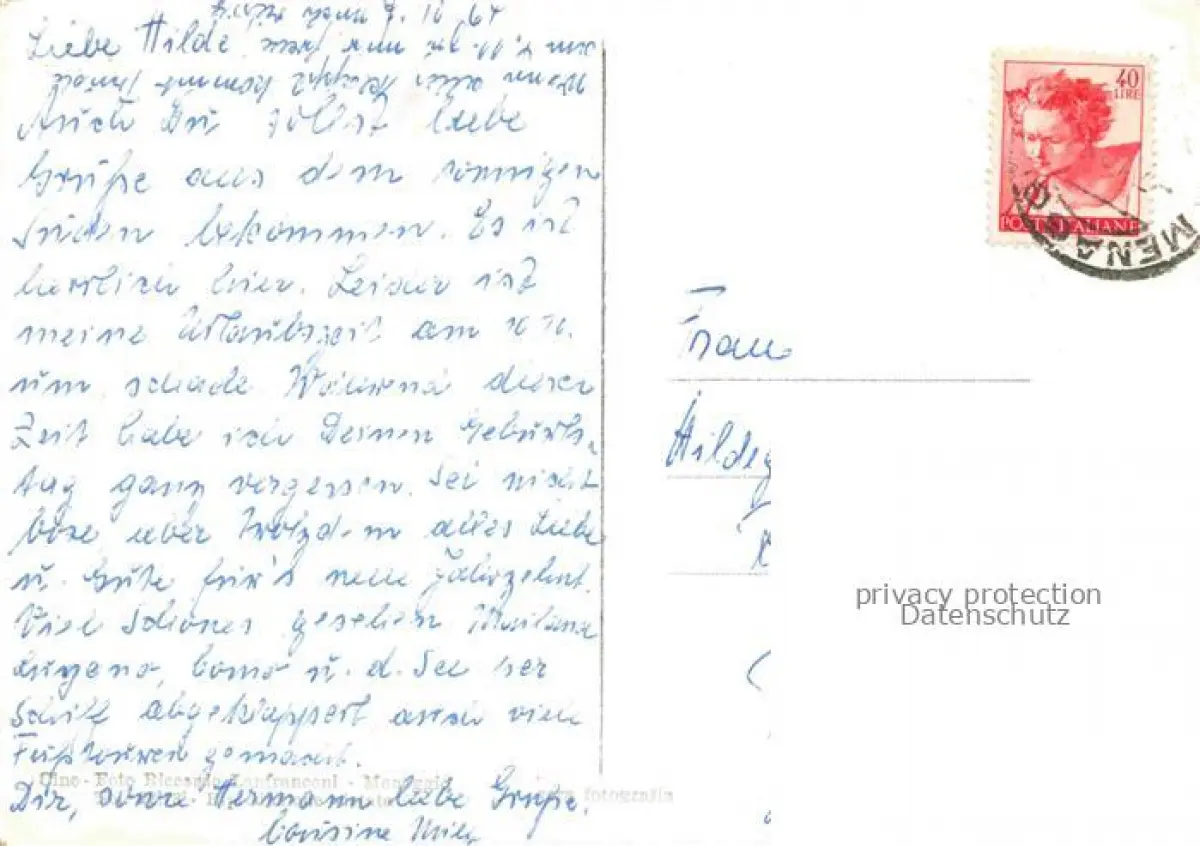 7. 10 64
Liebe Hilde
Auch Du sollst liebe
Grüße aus dem sonnigen
Süden bekommen. Es ist
herrlich hier. Leider ist
meine Urlaubszeit am
um, schade. Während dieser
Zeit habe ich Deinen Geburts-
tag ganz vergessen. Sei nicht
böse, aber trotzdem alles Liebe
u. Gute für's neue Jahrzehnt.
Viel Schönes gesehen. Mailand
Lugano, Como u. d. See per
Schiff abgeklappert auch viele
Fußtouren gemacht.
Dino - Foto Riccardo Lanfranconi - Menaggio
vera fotografia
Dir, sowie Hermann liebe Grüße.
Cousine
40
LIRE
POSTE ITALIANE
MENAGGIO
Frau
Hildeg
privacy protection
Datenschutz